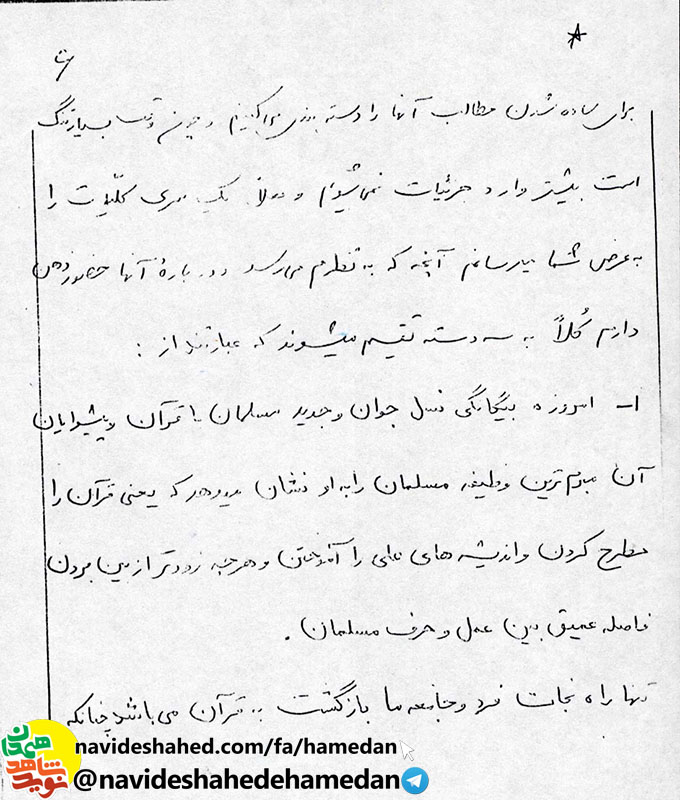 برای ساده شدن مطالب آنها را دسته بندی می کنیم و چون وقت بسیار تنگ
است بیشتر وارد جزئیات نمی شویم و یک سری کلّیات را
به عرض شما میرسانم آنچه که به نظرم می رسد و درباره آنها حضور ذهن
دارم کُلاً به سه دسته تقسیم میشوند که عبارتند از :
۱- امروزه بیگانگی نسل جوان و جدید مسلمان با قرآن و پیشوایان
آن مبرم ترین وظیفه مسلمان را به او نشان میدهد که یعنی قرآن را
مطرح کردن و اندیشه های را آموختن و هر چه زودتر از بین بردن
فاصله عمیق بین عمل و حرف مسلمان .
تنها راه نجات فرد و جامعه ما بازگشت به قرآن می باشد چنانکه
نوید شاهد همدان
navideshahed.com/fa/hamedan
@navideshahedehamedan